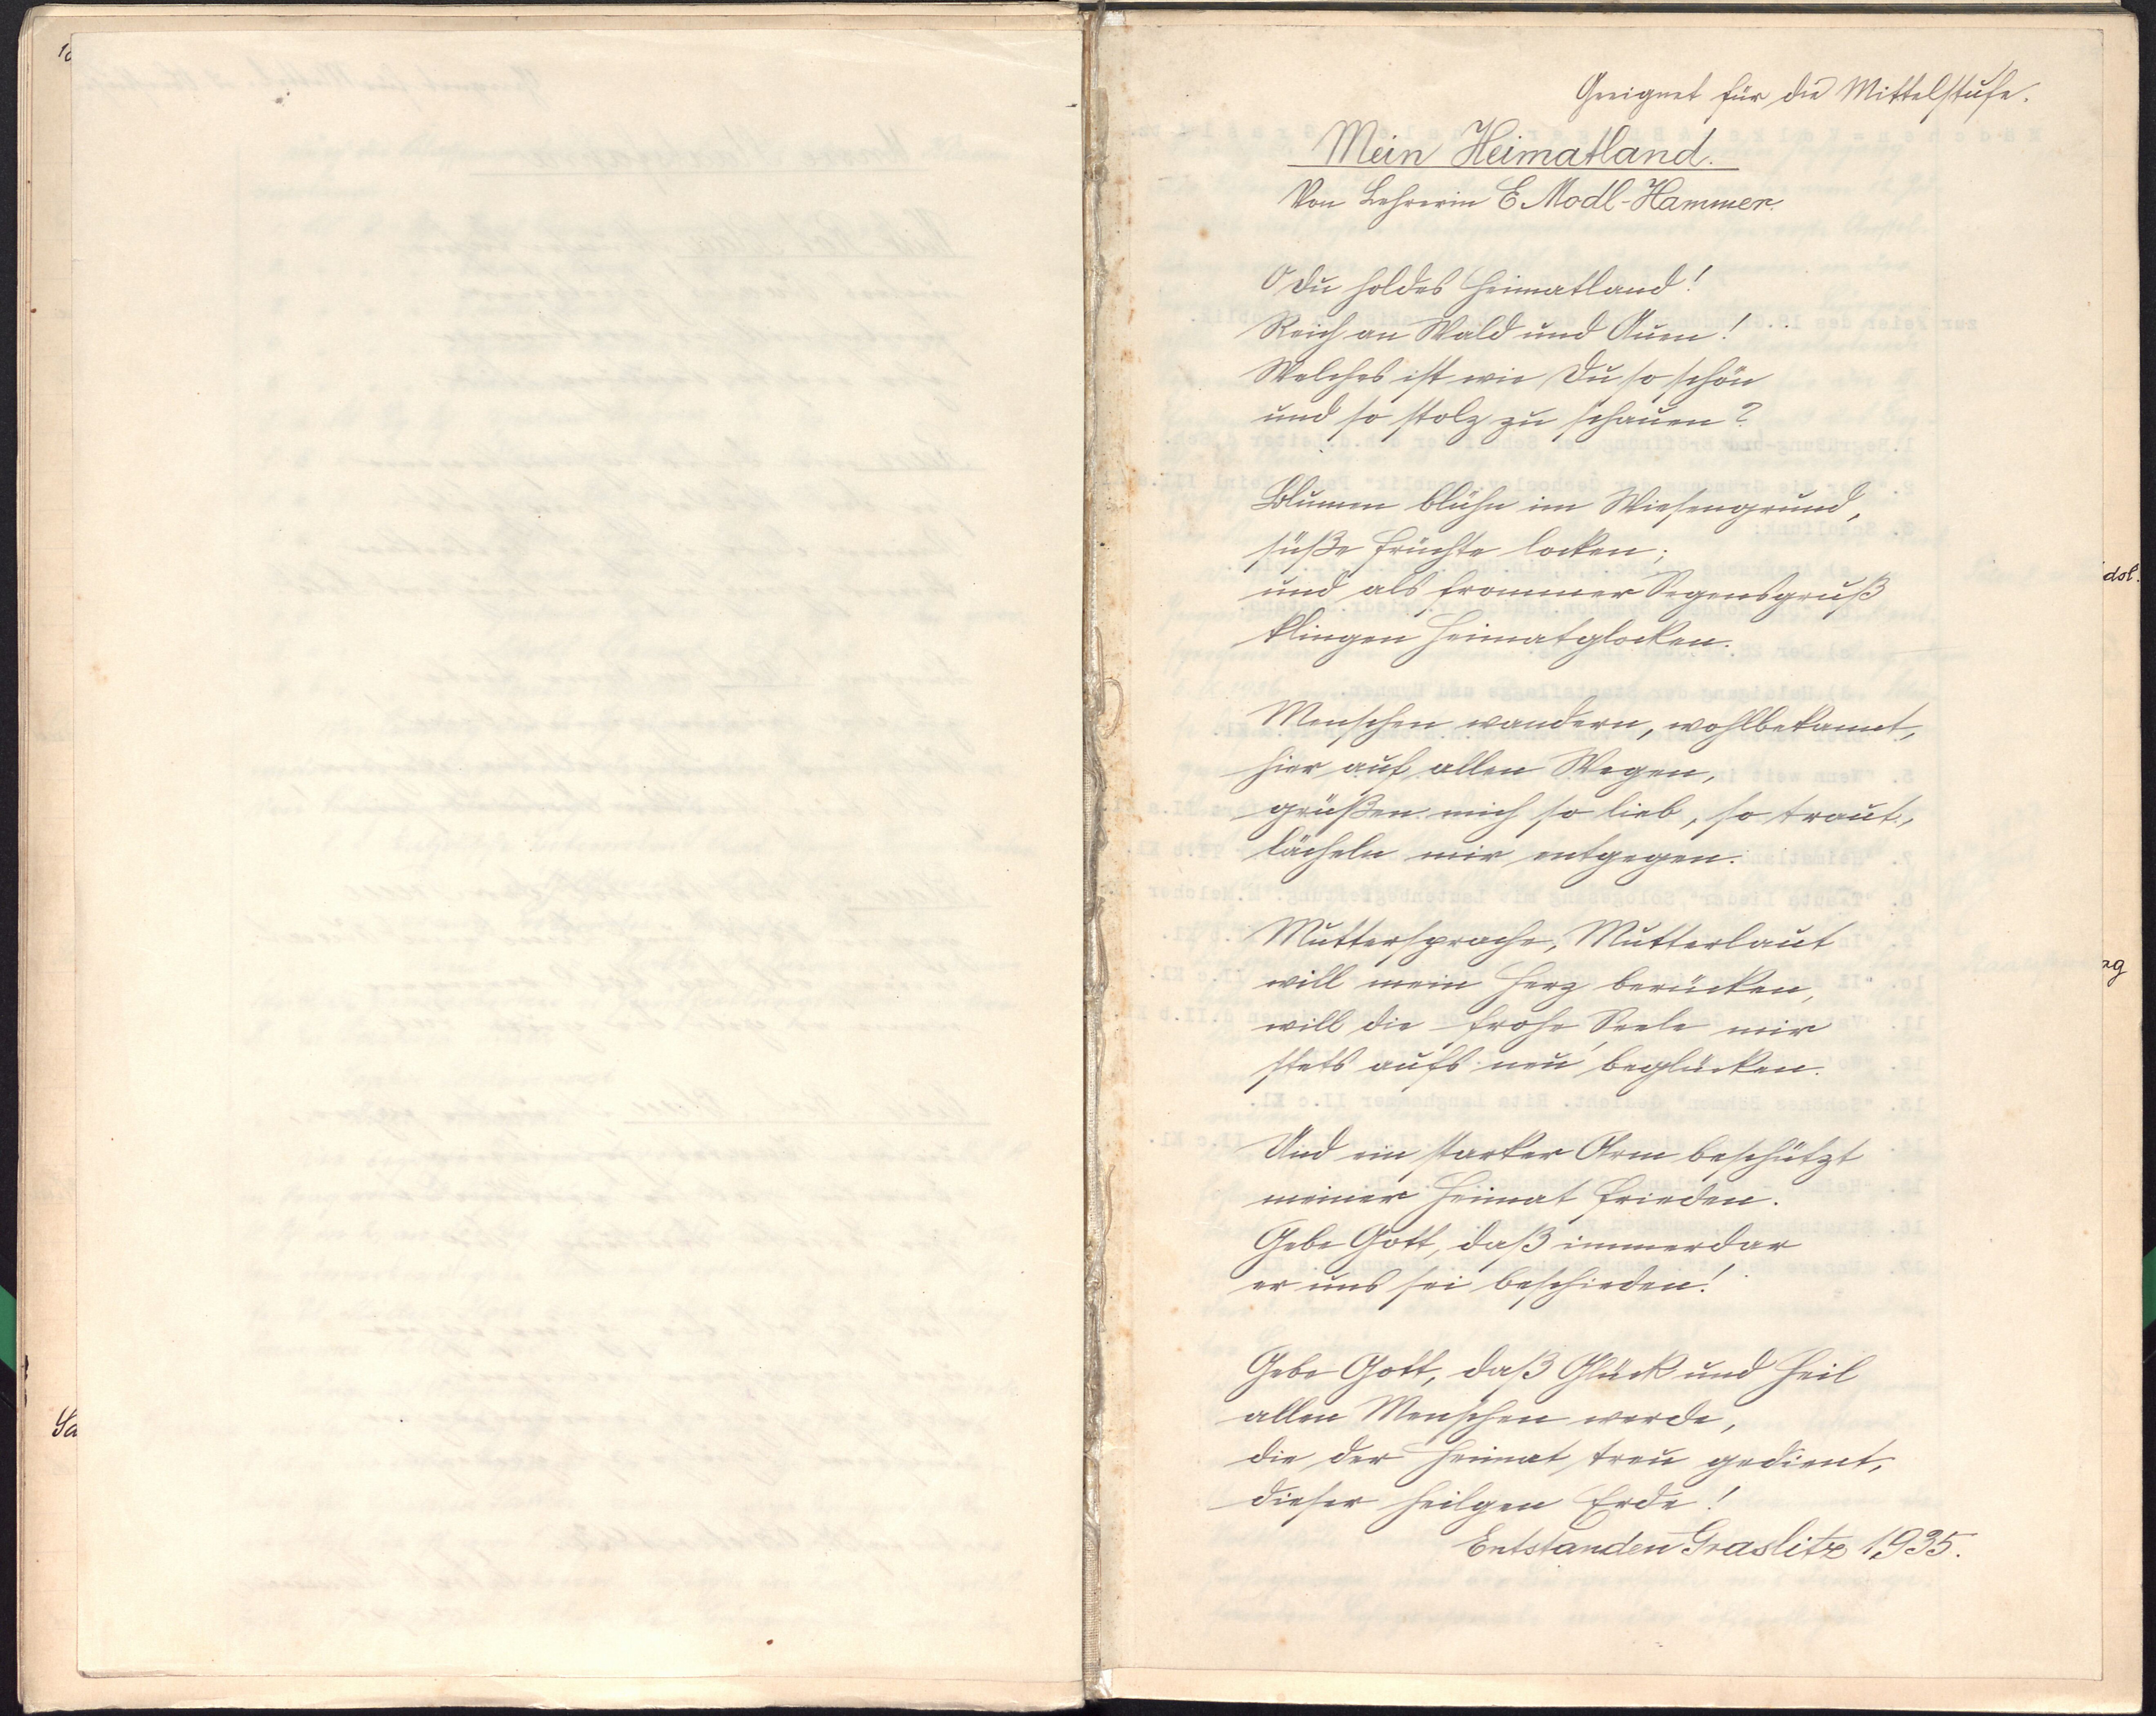 Geeignet für die Mittelstufe.
Mein Heimatland.
Von Lehrerin E. Modl-Hammer.
O du holdes Heimatland!
Reich an Wald und Auen!
Welches ist wie Du so schön
und so stolz zu schauen?
Blumen blühn im Wiesengrund,
süße Früchte locken;
und als frommer Segensgruß
klingen Heimatglocken.
Menschen wandern, wohlbekannt,
hier auf allen Wegen,
grüßen mich so lieb, so traut,
lächeln mir entgegen.
Muttersprache, Mutterlaut
will mein Herz berücken,
will die frohe Seele mir
stets aufs neu beglücken.
Und ein starker Arm beschützt
meiner Heimat Frieden.
Gebe Gott, daß immerdar
er uns sei beschieden!
Gebe Gott, daß Glück und Heil
allen Menschen werde,
die der Heimat treu gedient,
dieser heilgen Erde!
Entstanden Graslitz 1935.